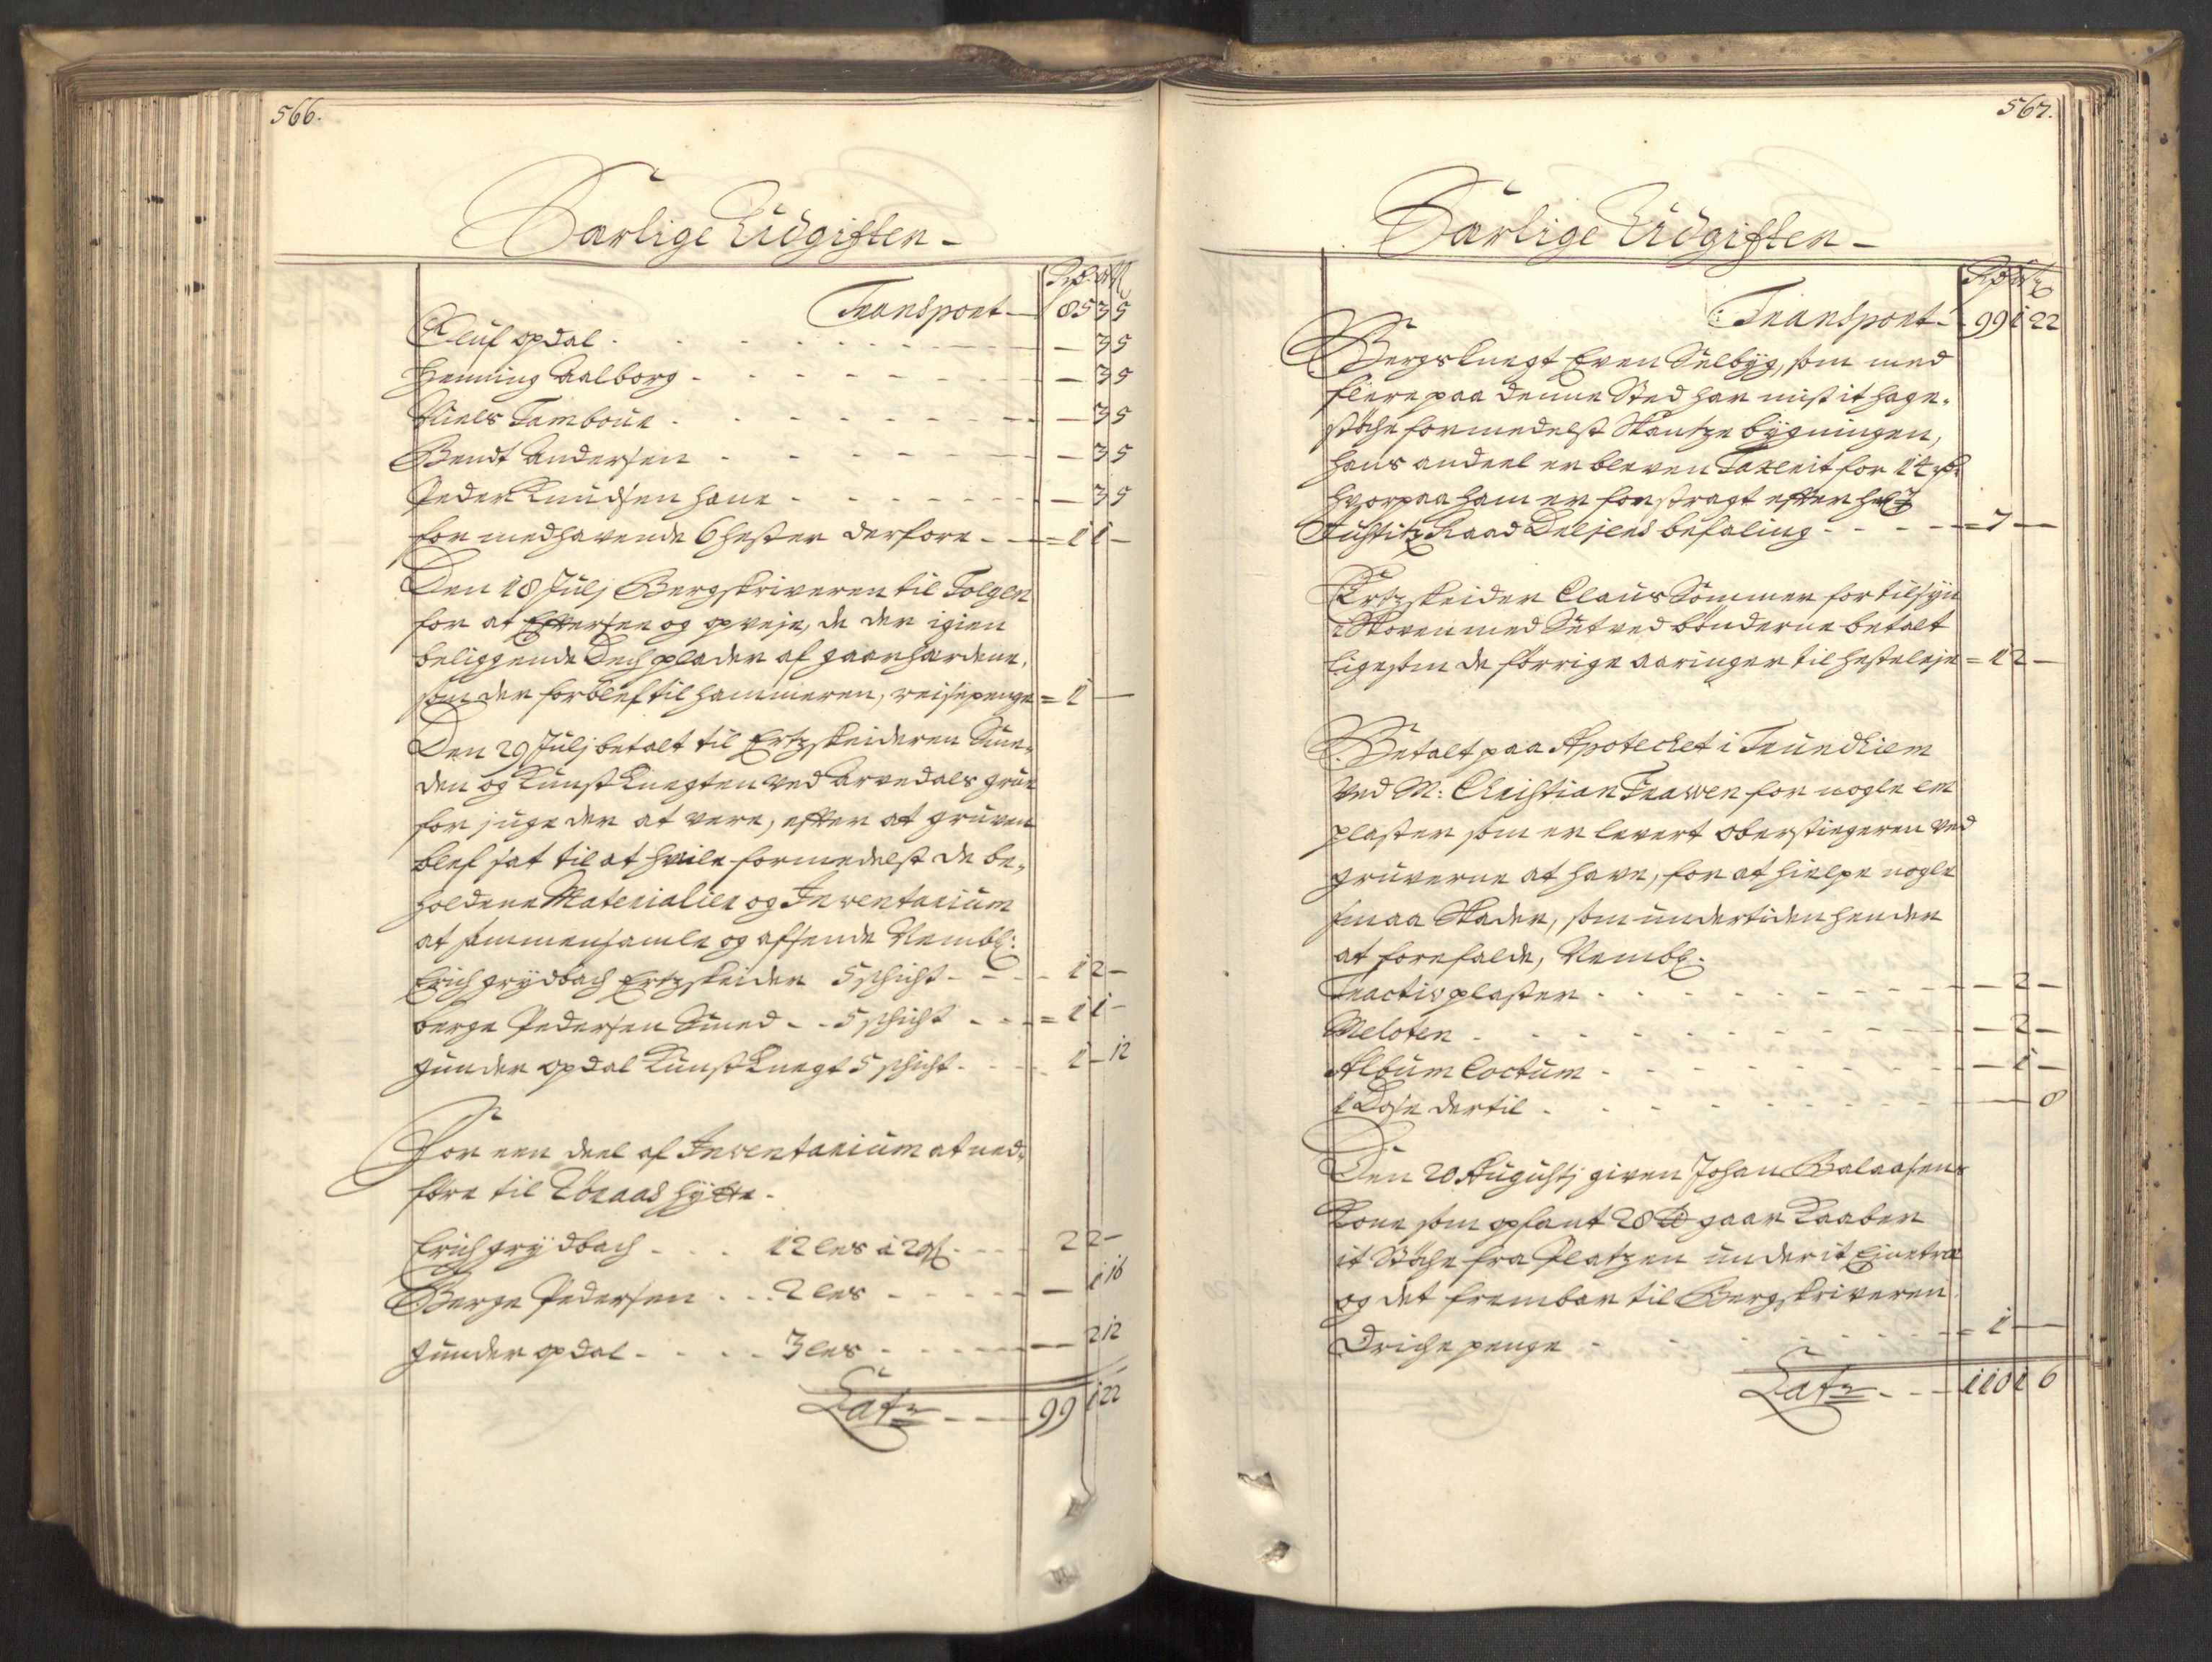 566.
Særlige Udgifter
Rd. ort ſ
Transport 85 3 5
Oluf opdal — 3 5
Henning Aalborg — 3 5
Niels Tambour — 3 5
Bendt Andersen — 3 5
Peder Knudsen Hane — 3 5
for medhavende 6 hester derfore 1 1 —
Den 18 Julj Bergskriveren til Tolgen
for at Eftersee og opveje, de der igien
beliggende Dech plader af gaarhærdene,
som der forblef til hammeren, reisepenge = 1 —
Den 29 Julj betalt til Ertzskeideren Sme-
den og Kunst Knegten ved Arvedals grue
for juge der at vere, efter at gruven
blef sat til at hvile formedelst de be-
holdene Materialier og Inventarium
at sammensamle og afsende Nembl:
Erich grydbach Ertzskeider 5 schicht 1 2 —
Berge Pedersen Smed 5 schicht 1 1 —
Gunder opdal Kunst Knegt 5 schicht 1 — 12
For een deel af Inventarium at ned-
føre til Røraas hytte.
Erich grydbach 12 les à 20 ſ 2 2 —
Berge Pedersen 2 les — 1 16
Gunder opdal 3 les — 2 12
Latz 99 1 22
567.
Særlige Udgifter
Rd ort ſ
Transport 99 1 22
Bergs knegt Even Selbyg, som med
flere paa denne Sted har mist it hage-
støche formedelst Skantze bygningen,
hans andeel er bleven Taxerit for 14 rd.
hvorpaa ham er forstragt efter
Justitz Raad Deljens befaling = 7 —
Ertzskeider Claus Sommer for tilsyn
i Skoven med Setved bønderne betalt
ligesom de forrige aaringer til hesteleje = 1 2 —
Betalt paa Apotechet i Trundhiem
ved M: Christian Trawen for nogle em
plaster som er levert Oberstiegeren ved
gruverne at have, for at hielpe nogle
smaa Skader, som undertiden hender
at forefalde, Nembl:
Tractivplaster — 2 —
Meloten — 2 —
Album Coctum — 1 —
1 Dose dertil — — 8
Den 20 Augustj given Johan Balaasens
Kone som opfant 28 ℔ gaar Kaaber
it Støche fra Platzen under it Einetræ
og det frembar til Bergskriveren
Driche penge = 1 —
Latz 110 1 6